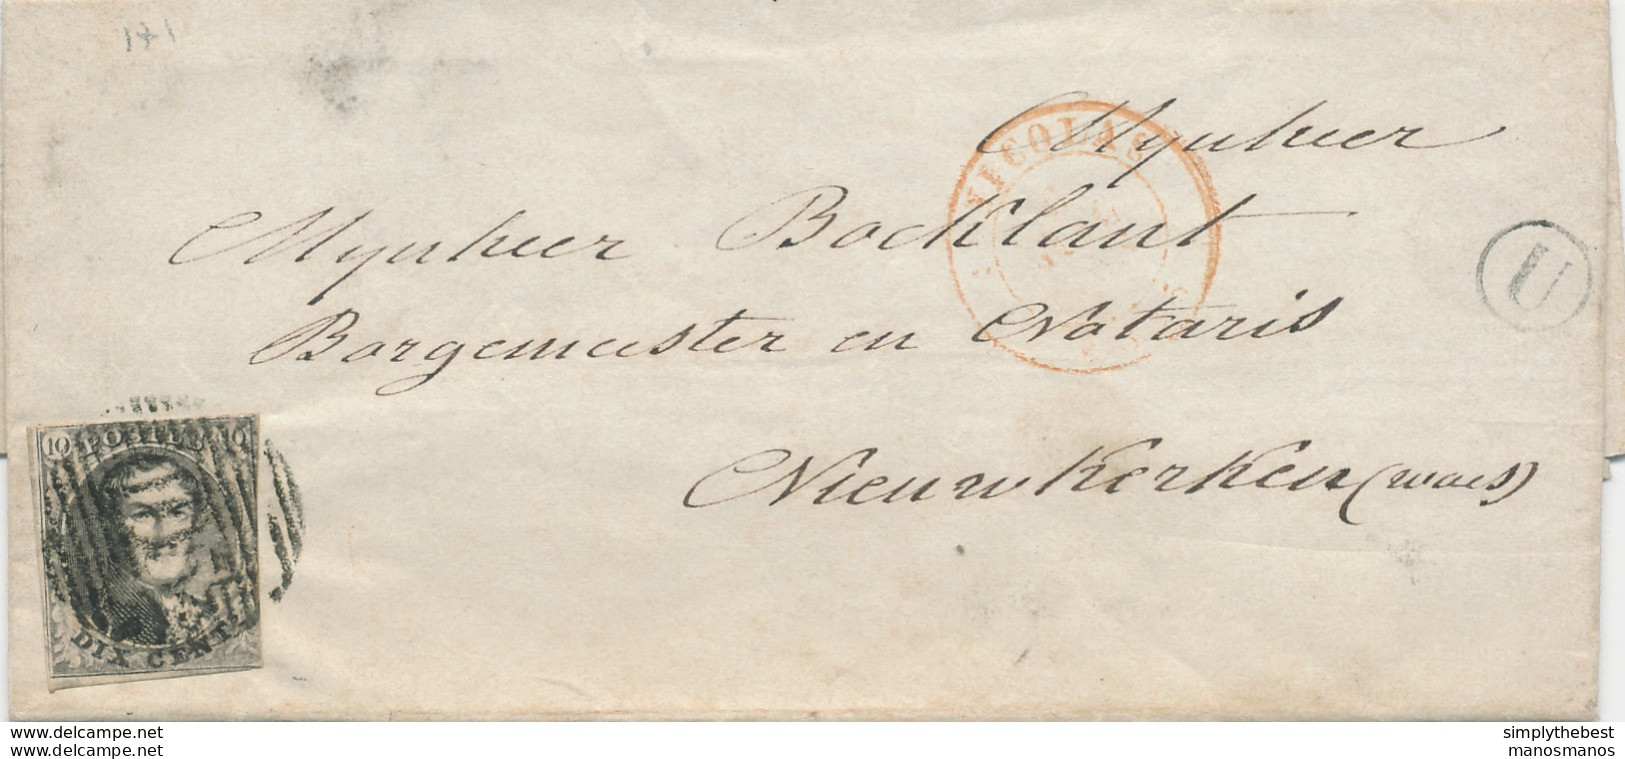 141
Mynheer
NICOLAS
Mynheer Bocklant
Borgemeester en Notaris
U
Nieuwkerken (waes)
10 POSTES 10
DIX CENTS
www.delcampe.net
www.delcampe.net
simplythebest
manosmanos